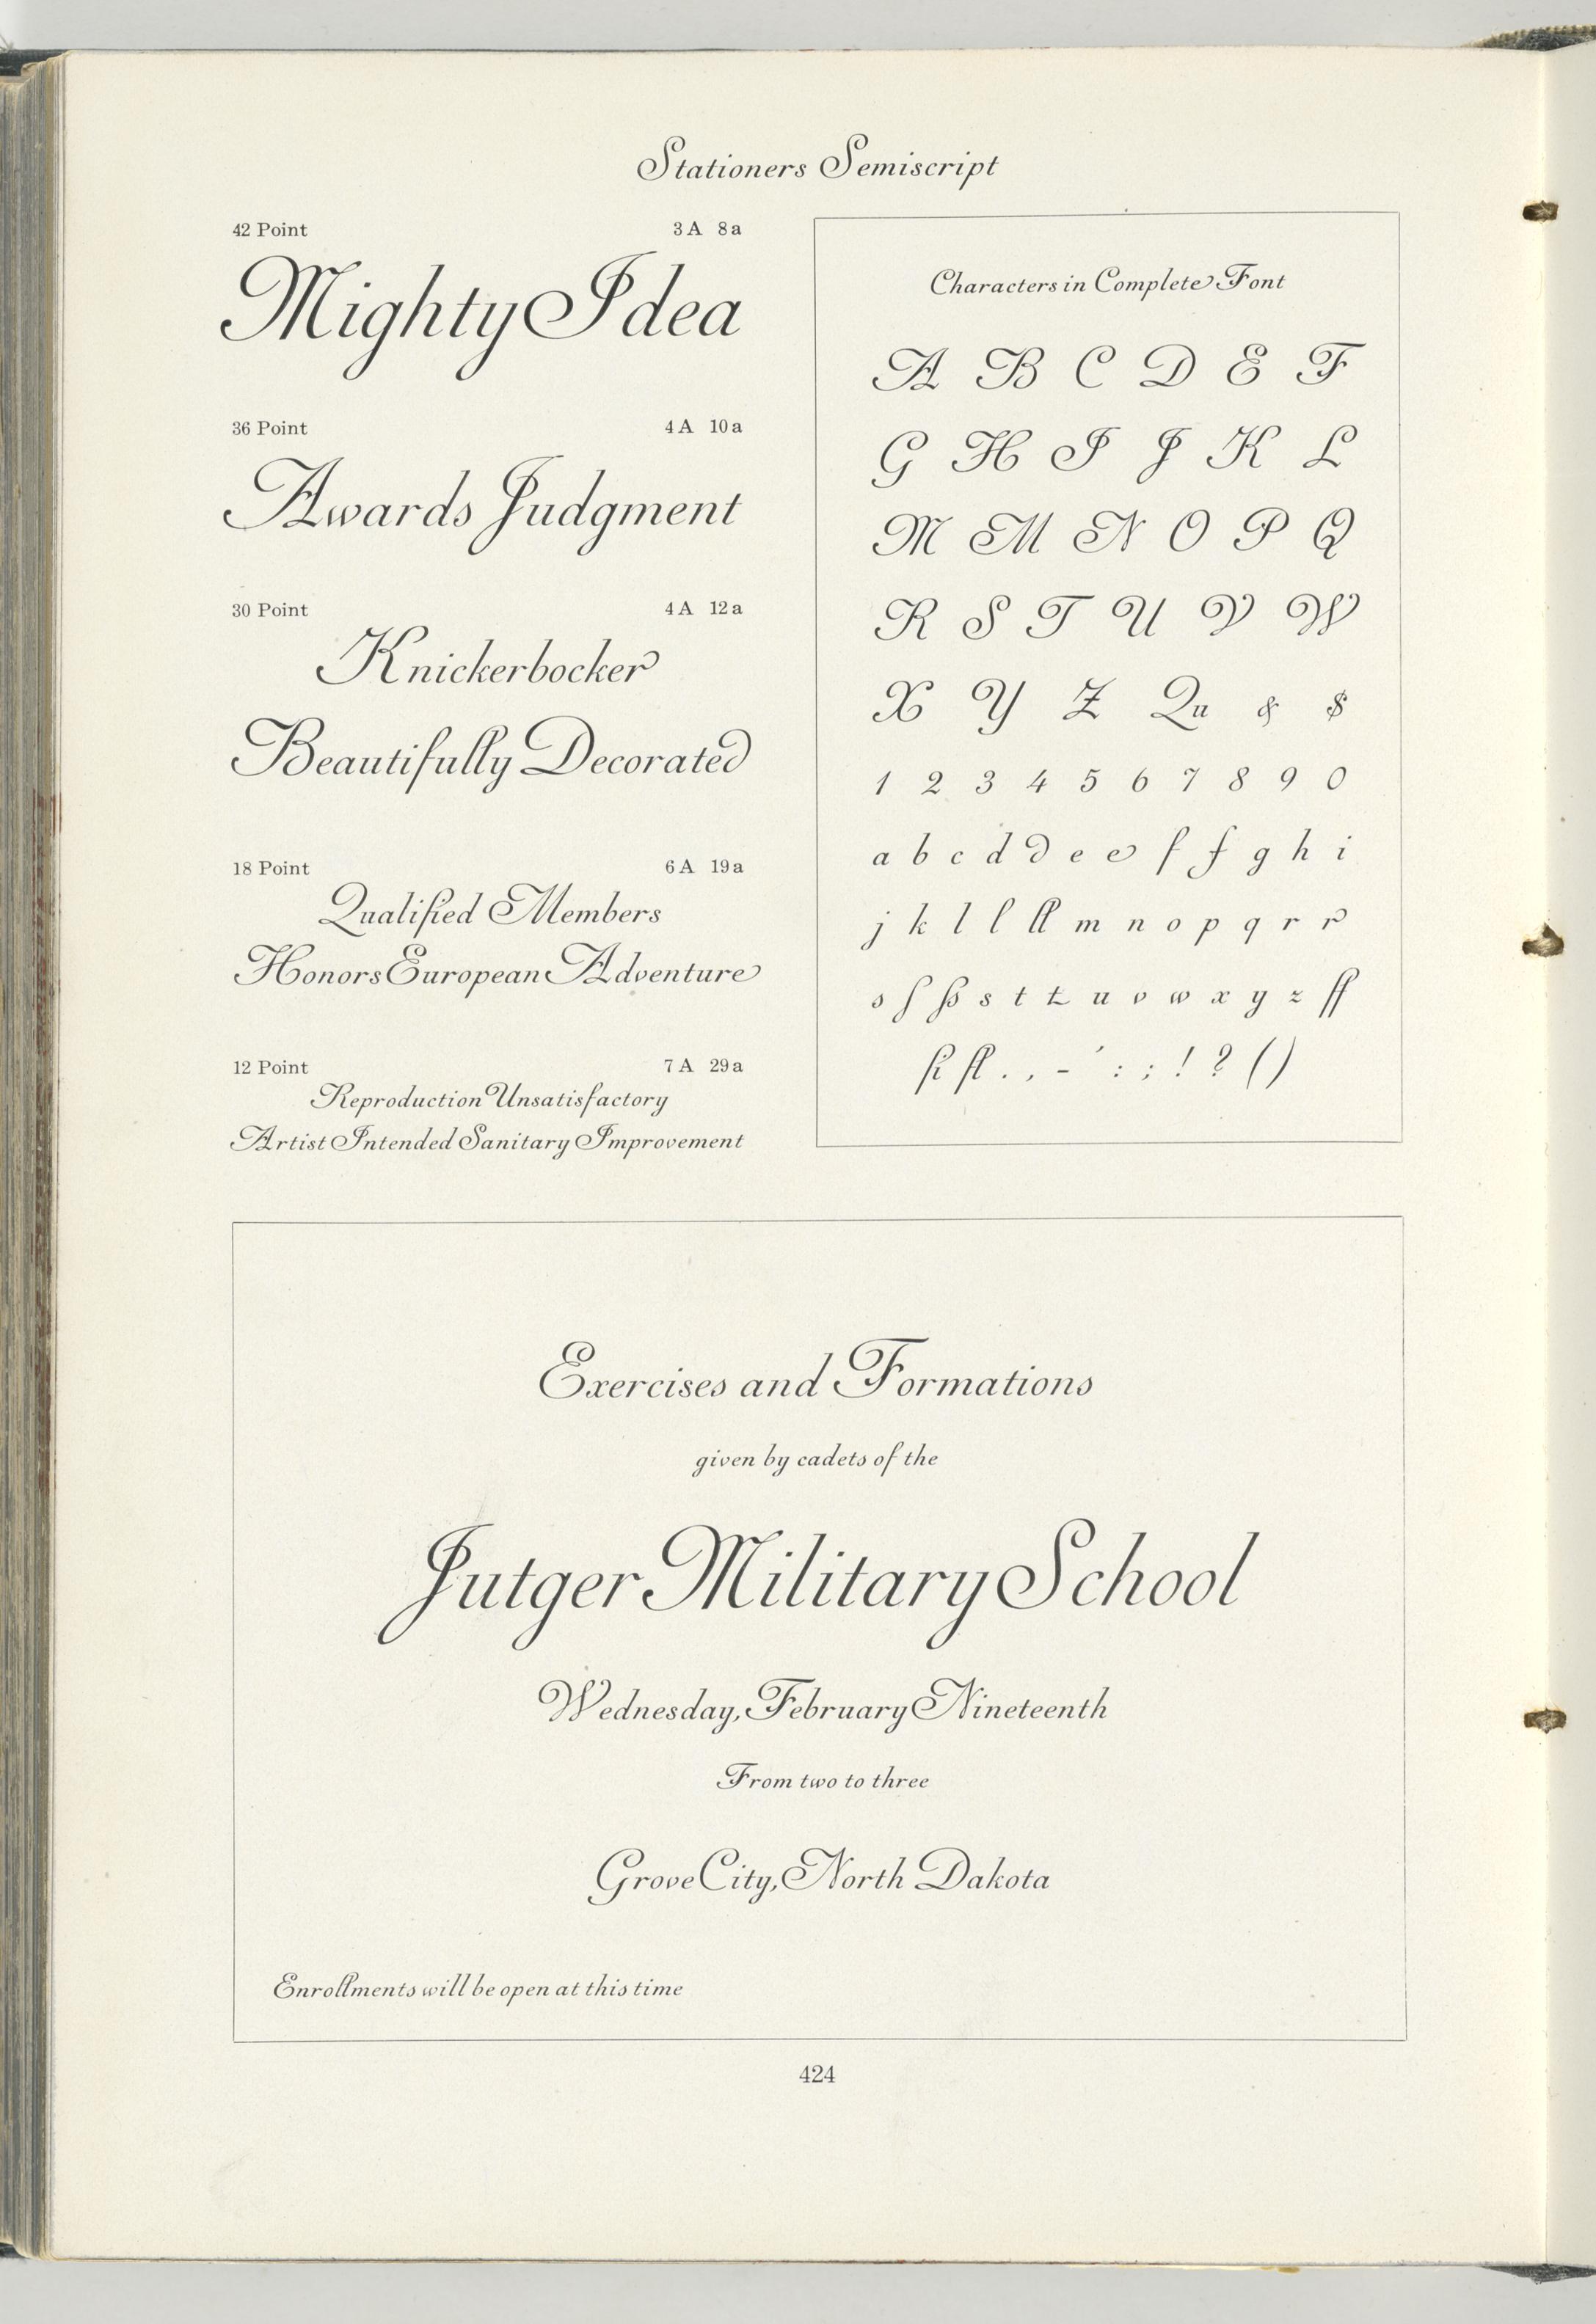 Stationers Semiscript
42 Point 3 A 8 a
Mighty Idea
36 Point 4 A 10 a
Awards Judgment
30 Point 4 A 12 a
Knickerbocker
Beautifully Decorated
18 Point 6 A 19 a
Qualified Members
Honors European Adventure
12 Point 7 A 29 a
Reproduction Unsatisfactory
Artist Intended Sanitary Improvement
Characters in Complete Font
A B C D E F
G H I J K L
M M N O P Q
R S T U V W
X Y Z Qu & $
1 2 3 4 5 6 7 8 9 0
a b c d d e e f f g h i
j k l l ll m n o p q r r
s ſ ß s t t u v w x y z ff
fi fl . , - ' : ; ! ? ( )
Exercises and Formations
given by cadets of the
Jutger Military School
Wednesday, February Nineteenth
From two to three
Grove City, North Dakota
Enrollments will be open at this time
424